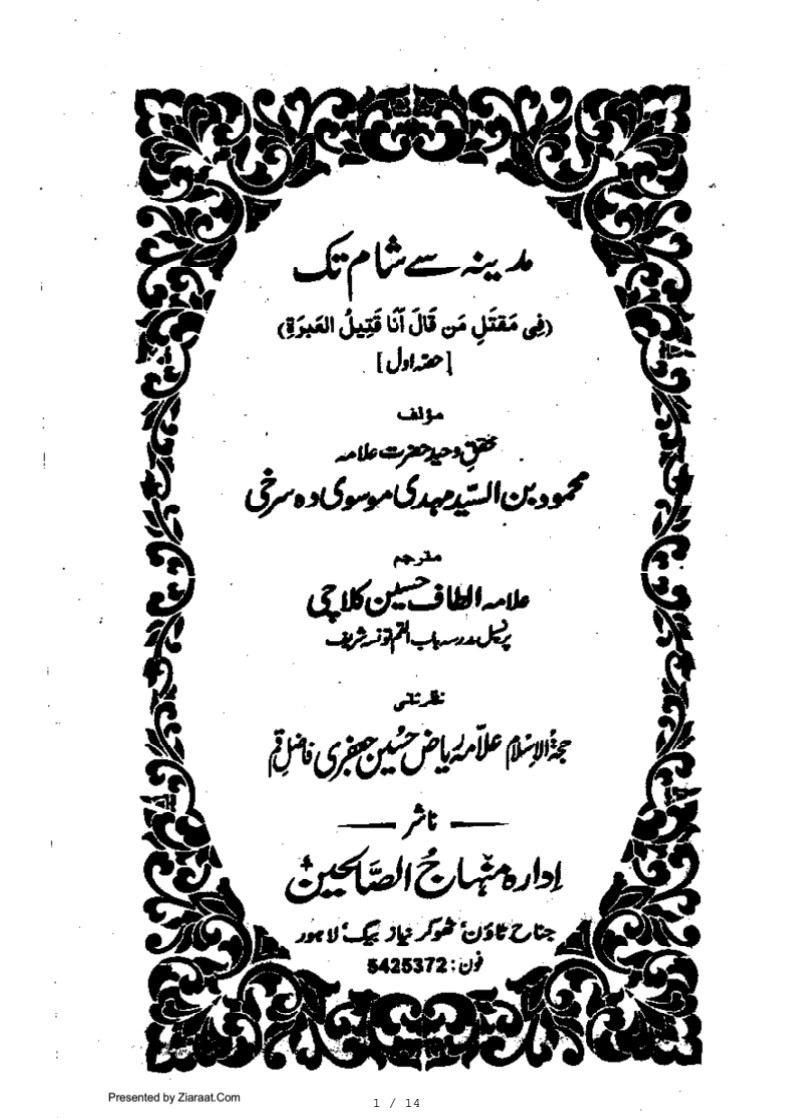 مدینہ سے شام تک
(فِی مَقتَلِ مَن قَالَ اَنَا قَتِیلُ العَبرَةِ)
[حصّہ اول]
مؤلف
محقق وحید حضرت علامہ
محمود بن السیّد مہدی موسوی دہ سرخی
مترجم
علامہ الطاف حسین کلاچی
پرنسپل مدرسہ باب القم تونسہ شریف
نظر ثانی
حجۃ الاسلام علامہ ریاض حسین جعفری فاضل قم
ناشر
ادارہ منہاج الصالحین
جناح ٹاؤن ٹھوکر نیاز بیگ لاہور
فون: 5425372
Presented by Ziaraat.Com
1 / 14